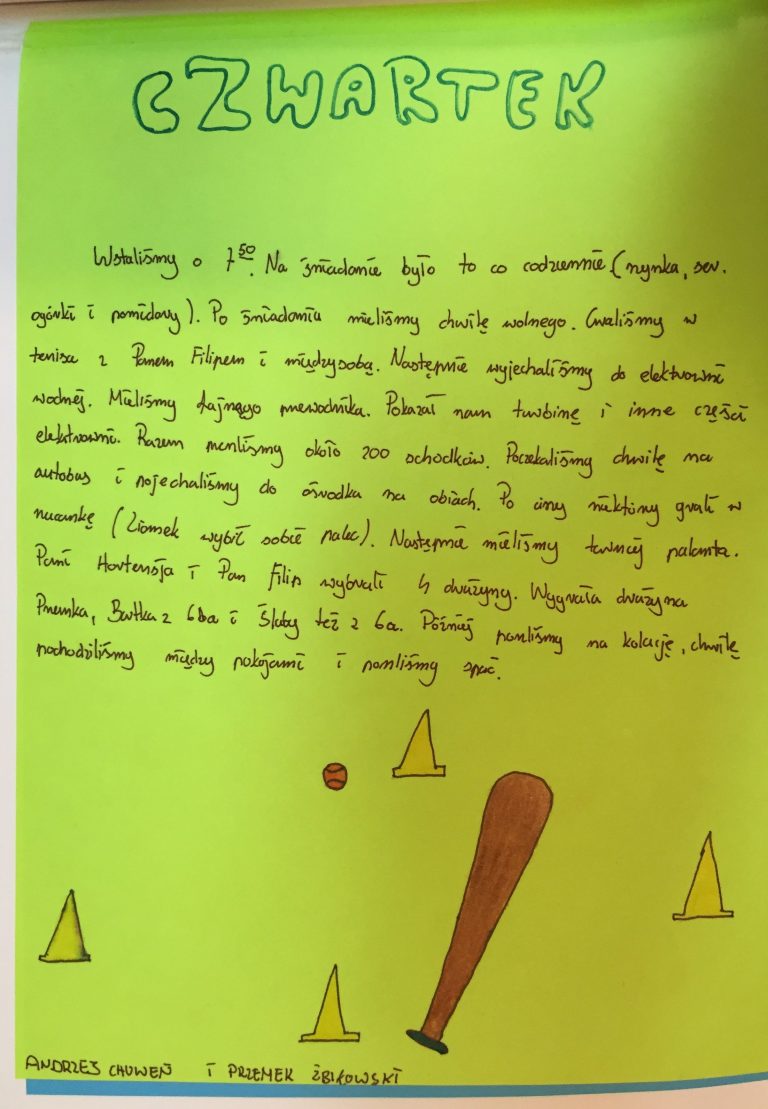 CZWARTEK
Wstaliśmy o 7⁵⁰. Na śniadanie było to co codziennie (szynka, ser,
ogórki i pomidory). Po śniadaniu mieliśmy chwilę wolnego. Graliśmy w
tenisa z Panem Filipem i między sobą. Następnie wyjechaliśmy do elektrowni
wodnej. Mieliśmy fajnego przewodnika. Pokazał nam turbinę i inne części
elektrowni. Razem przeszliśmy około 200 schodków. Poczekaliśmy chwilę na
autobus i pojechaliśmy do ośrodka na obiad. Po ciszy niektórzy grali w
rzucankę (Ziomek wybił sobie palec). Następnie mieliśmy turniej palanta.
Pani Hortensja i Pan Filip wybrali 4 drużyny. Wygrała drużyna
Przemka, Bartka z 6ba i Śluby też z 6a. Później poszliśmy na kolację, chwilę
pochodziliśmy między pokojami i poszliśmy spać.
ANDRZEJ CHUWEŃ I PRZEMEK ŻBIKOWSKI